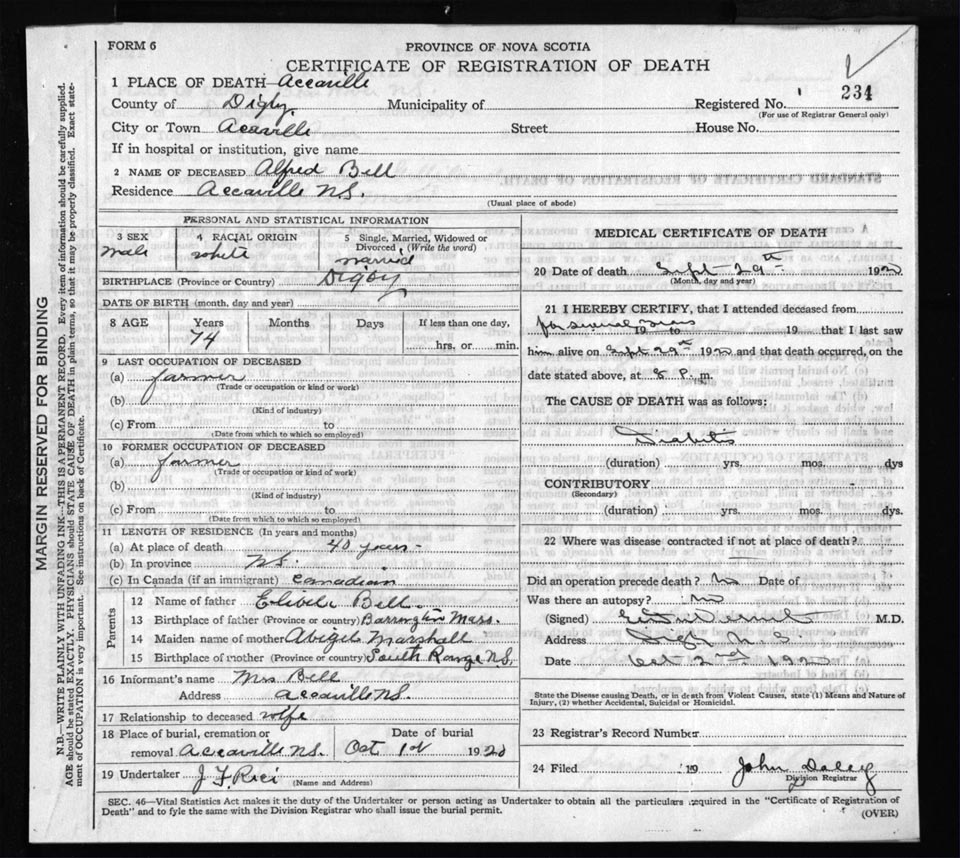 FORM 6
PROVINCE OF NOVA SCOTIA
CERTIFICATE OF REGISTRATION OF DEATH
1 PLACE OF DEATH Accaville
County of Digby Municipality of Registered No. 234
(For use of Registrar General only)
City or Town Acaville Street House No.
If in hospital or institution, give name
2 NAME OF DECEASED Alfred Bell
Residence Accaville N.S.
(Usual place of abode)
MARGIN RESERVED FOR BINDING
N.B.—WRITE PLAINLY WITH UNFADING INK—THIS IS A PERMANENT RECORD. Every item of information should be carefully supplied.
AGE should be stated EXACTLY. PHYSICIANS should STATE CAUSE OF DEATH in plain terms, so that it may be properly classified. Exact state-
ment of OCCUPATION is very important. See instructions on back of Certificate.
PERSONAL AND STATISTICAL INFORMATION
3 SEX 4 RACIAL ORIGIN 5 Single, Married, Widowed or
Divorced (Write the word)
male white married
BIRTHPLACE (Province or Country) Digby
DATE OF BIRTH (month, day and year)
8 AGE Years Months Days If less than one day,
74 hrs. or min.
9 LAST OCCUPATION OF DECEASED
(a) farmer
(Trade or occupation or kind or work)
(b)
(Kind of industry)
(c) From to
(Date from which to which so employed)
10 FORMER OCCUPATION OF DECEASED
(a) farmer
(Trade or occupation or kind of work)
(b)
(Kind of industry)
(c) From to
(Date from which to which so employed)
11 LENGTH OF RESIDENCE (In years and months)
(a) At place of death 40 years
(b) In province N.S.
(c) In Canada (if an immigrant) Canadian
Parents
12 Name of father Bell
13 Birthplace of father (Province or country) Barrington Mass.
14 Maiden name of mother Abigel Marshall
15 Birthplace of mother (Province or country) South Range N.S.
16 Informant's name Mrs Bell
Address Accaville N.S.
17 Relationship to deceased wife
18 Place of burial, cremation or Date of burial
removal Accaville N.S. Oct 1st 1920
19 Undertaker J F Rici
(Name and Address)
MEDICAL CERTIFICATE OF DEATH
20 Date of death Sept 29th 1920
(Month, day and year)
21 I HEREBY CERTIFY, that I attended deceased from
for several years 19 to 19 that I last saw
him alive on Sept 29th 1920 and that death occurred, on the
date stated above, at 8 P. m.
The CAUSE OF DEATH was as follows:
Diabetis
(duration) yrs. mos. dys
CONTRIBUTORY
(Secondary)
(duration) yrs. mos. dys.
22 Where was disease contracted if not at place of death?
Did an operation precede death? No Date of
Was there an autopsy? No
(Signed) M.D.
Address Digby N.S.
Date Oct 2nd 1920
State the Disease causing Death, or in death from Violent Causes, state (1) Means and Nature of
Injury, (2) whether Accidental, Suicidal or Homicidal.
23 Registrar's Record Number
24 Filed 19 John Daley
Division Registrar
SEC. 46—Vital Statistics Act makes it the duty of the Undertaker or person acting as Undertaker to obtain all the particulars required in the "Certificate of Registration of
Death" and to fyle the same with the Division Registrar who shall issue the burial permit.
(OVER)